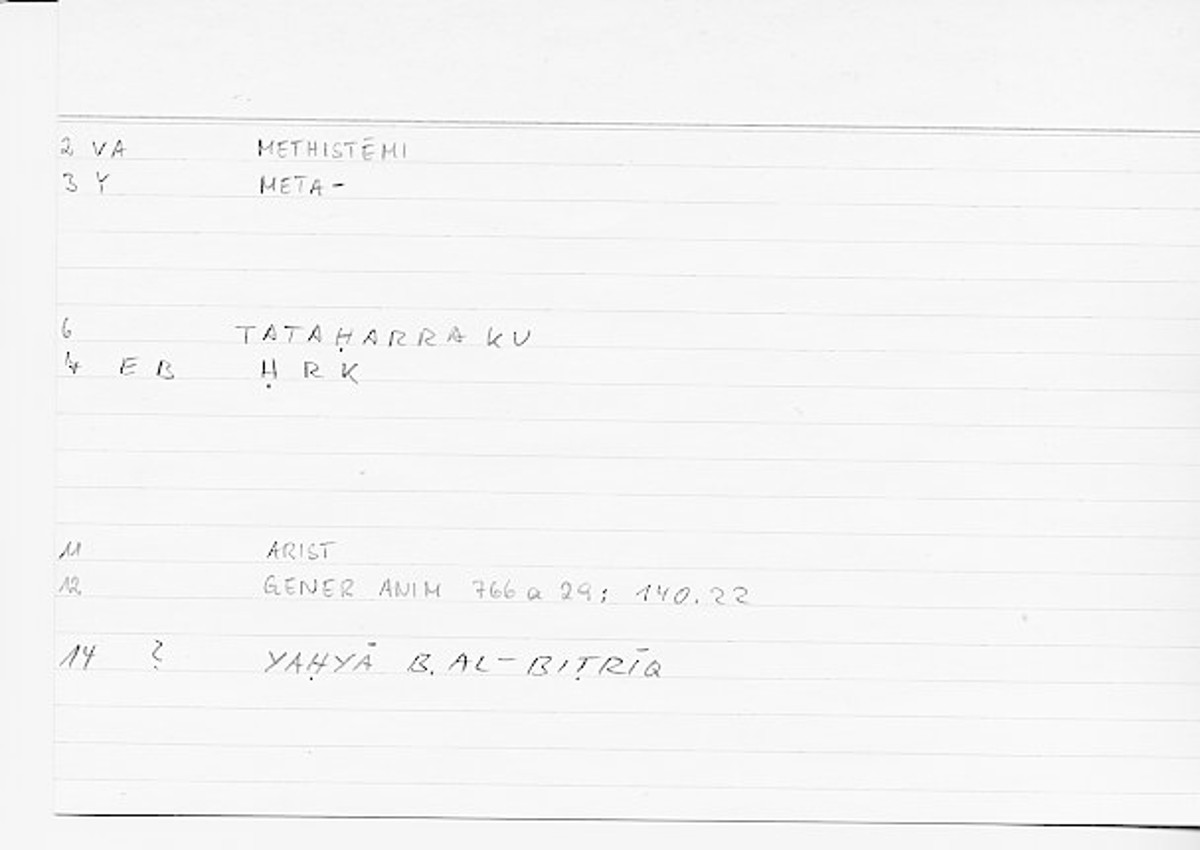 2 VA METHISTĒMI
3 Y META-
6 TATAḤARRAKU
4 EB ḤRK
11 ARIST
12 GENER ANIM 766 a 29; 140.22
14 ? YAḤYĀ B. AL-BIṬRĪQ